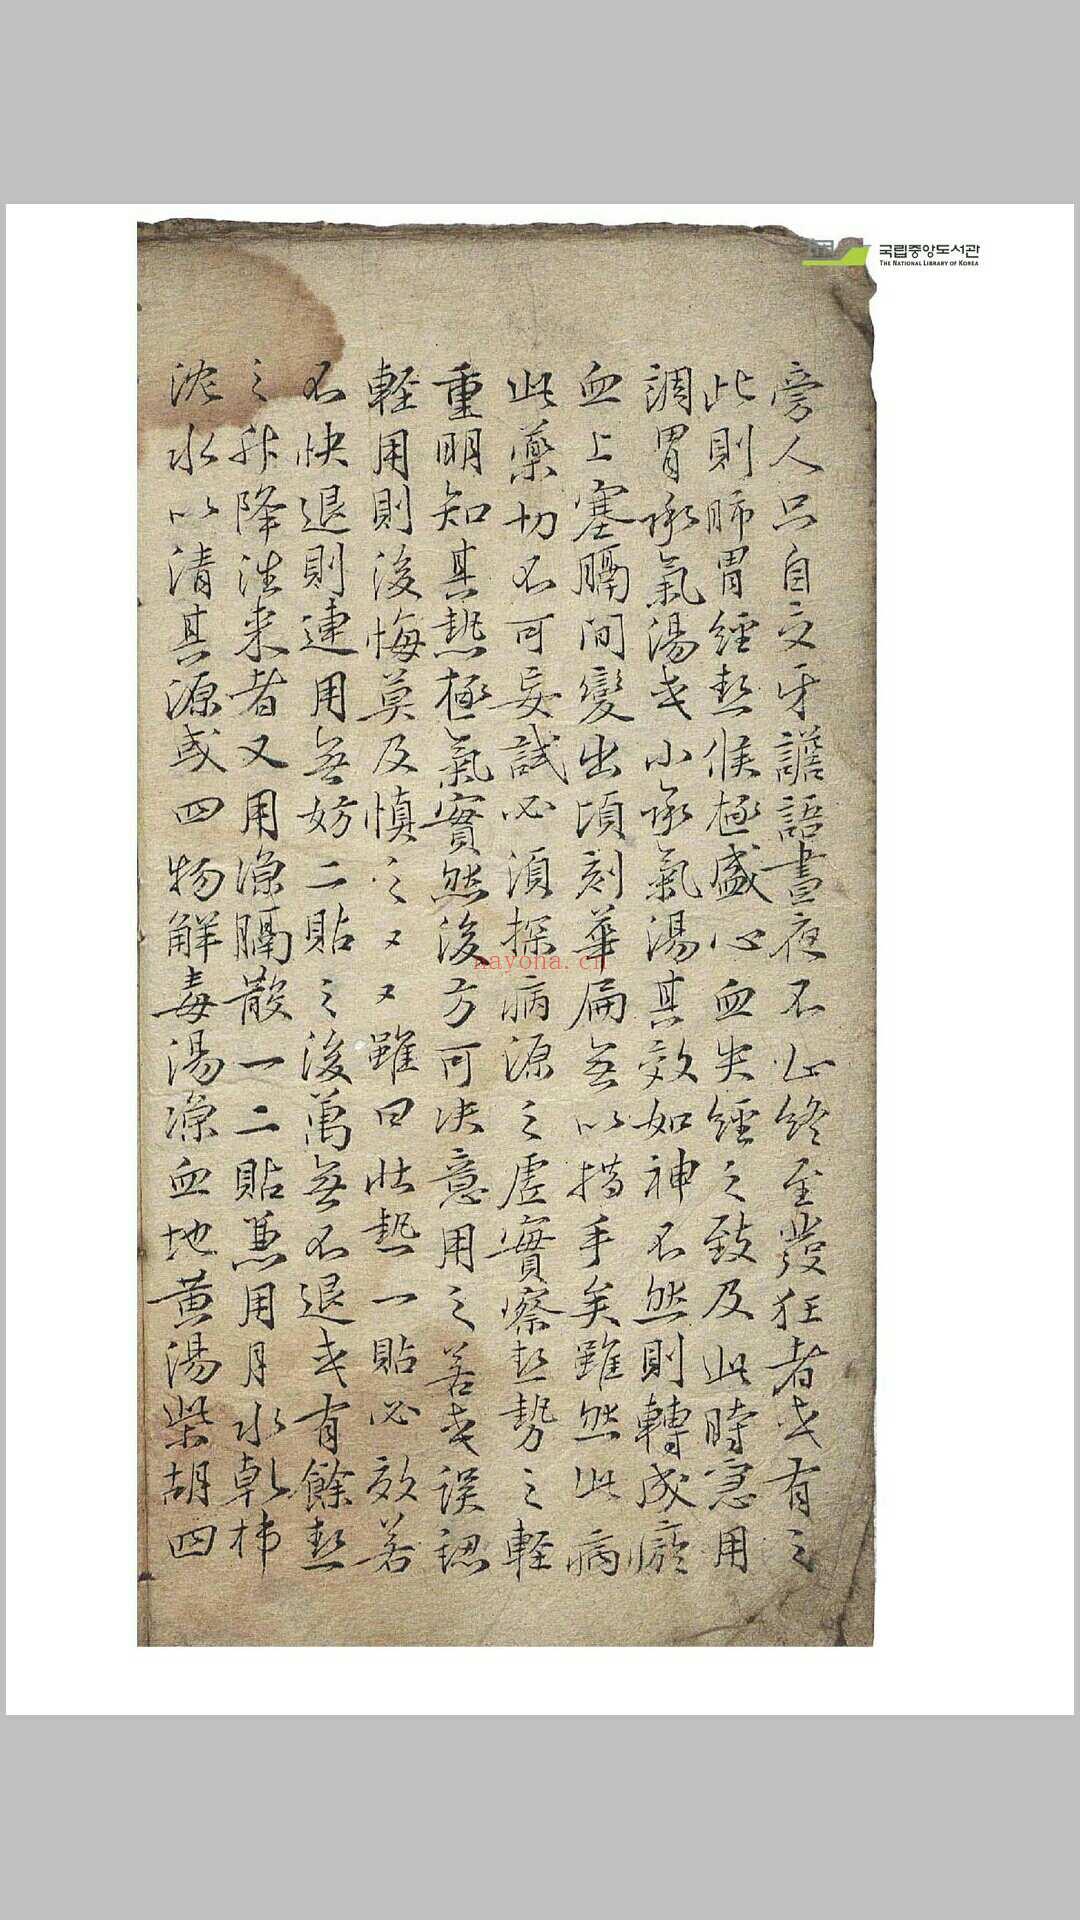 旁人只自交牙譫語晝夜不止終至發狂者或有之
此則肺胃經熱候極盛心血失經之致及此時急用
調胃承氣湯或小承氣湯其效如神不然則轉成癍
血上塞膈間變出頃刻華扁無以措手矣雖然此病
此藥切不可妄試必須探病源之虛實察熱勢之輕
重明知其熱極氣實然後方可决意用之若或误認
軽用則後悔莫及慎之又又雖曰壯熱一貼必效若
不快退則連用無妨二貼之後萬無不退或有餘熱
之升降往来者又用凉膈散一二貼兼用月水乾柿
沈水以清其源或四物解毒湯凉血地黄湯柴胡四
국립중앙도서관
THE NATIONAL LIBRARY OF KOREA
nayona.cn